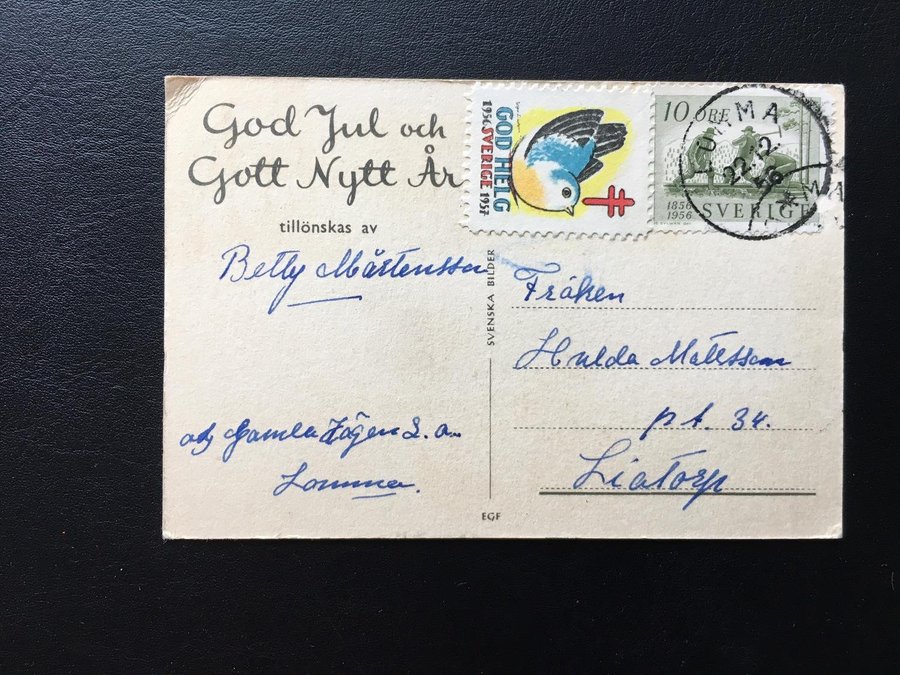 God Jul och
Gott Nytt År
tillönskas av
Betty Mårtensson
Gamla
Lomma.
SVENSKA BILDER
EGF
GOD HELG
1956 SVERIGE 1957
10 ÖRE
1856
1956 SVERIGE
LOMMA
22.12
56
Fröken
Hulda Mattsson
p.t. 34.
Liatorp